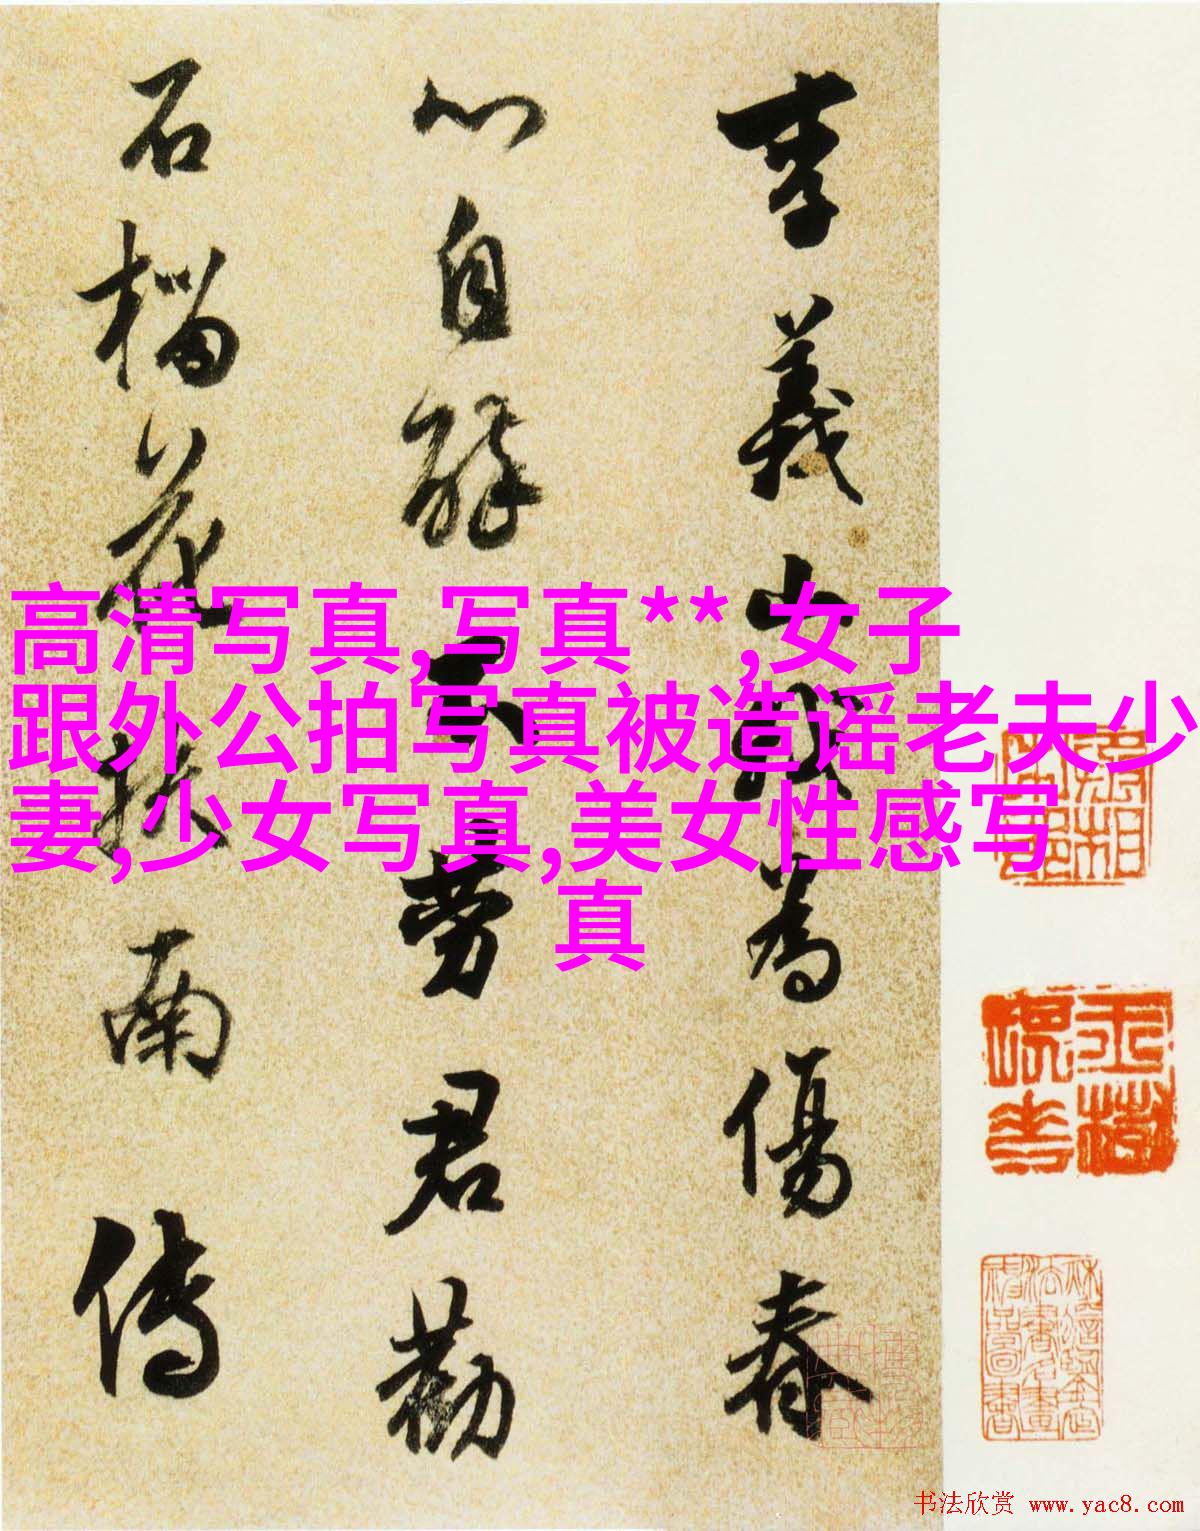 李義山我為傷春
心自醉不勞君勸
石榴花扶南傳
高清写真,写真**,女子
跟外公拍写真被造谣老夫少
妻,少女写真,美女性感写
真
书法欣赏 www.yac8.com